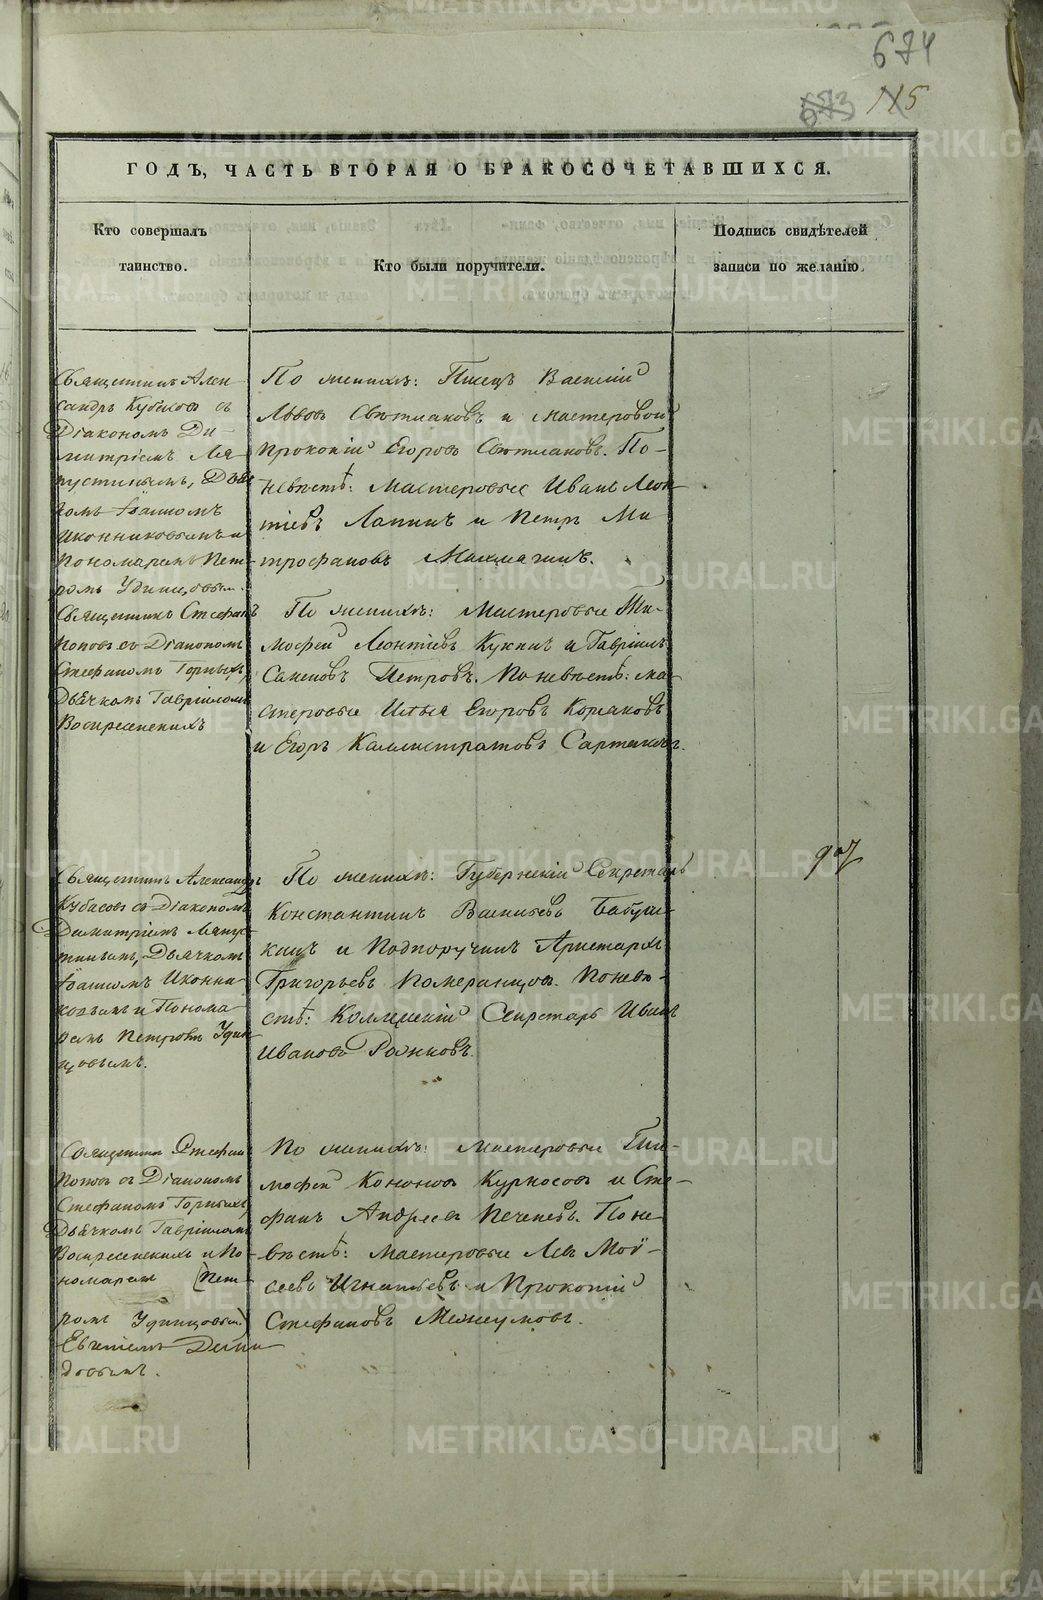 674
673 115
ГОДЪ, ЧАСТЬ ВТОРАЯ О БРАКОСОЧЕТАВШИХСЯ.
Кто совершалъ
таинство.
Кто были поручители.
Подпись свидѣтелей
записи по желанію.
Священникъ Алек-
сандръ Кубасовъ съ
Діакономъ Ди-
митріемъ Ля-
пустинымъ, Дьяч
комъ Іоанномъ
Иконниковымъ и
Пономаремъ Пет-
ромъ Удинцовым.
По женихѣ: Писецъ Василій
Львовъ Свѣтлаковъ и мастеровой
Прокопій Егоровъ Свѣтлаковъ. По-
невѣстѣ: Мастеровые Иванъ Леон
тіевъ Лапинъ и Петръ Ми
трофановъ
Священникъ Стефанъ
Поповъ съ Діакономъ
Стефаномъ Горныхъ,
Дьячкомъ Гавріиломъ
Воскресенскихъ
По женихѣ: Мастеровые Ти-
мофей Леонтіевъ Кукинъ и Гавріилъ
Петровъ. По невѣстѣ: ма-
стеровые Илья Егоровъ Корлаковъ
и Егоръ Каллистратовъ
Священникъ Александръ
Кубасовъ съ Діакономъ
Димитріемъ Ляпус-
тинымъ, Дьячкомъ
Іоанномъ Иконни-
ковымъ и Понома
ремъ Петромъ Удин
цовымъ.
По женихѣ: Губернскій Секретарь
Константинъ Васильевъ Бабуш-
кинъ и Подпоручикъ Аристархъ
Григорьевъ Померанцовъ. По невѣ-
стѣ: Коллежскій Секретарь Иванъ
Ивановъ Рожковъ.
Священникъ Стефан
Поповъ съ Діакономъ
Стефаномъ Горныхъ,
Дьячкомъ Гавріиломъ
Воскресенскихъ и По-
номаремъ (Пет-
ромъ Удинцовым)
Евгеніемъ Деми
довымъ.
По женихѣ: Мастеровые Ти-
мофей Кононовъ Курносовъ и Сте-
фанъ Андреевъ Печеневъ. По не
вѣстѣ: мастеровые Левъ Мои-
сеевъ Игнатьевъ и Прокопій
Стефановъ Межеумовъ.
METRIKI.GASO-URAL.RU